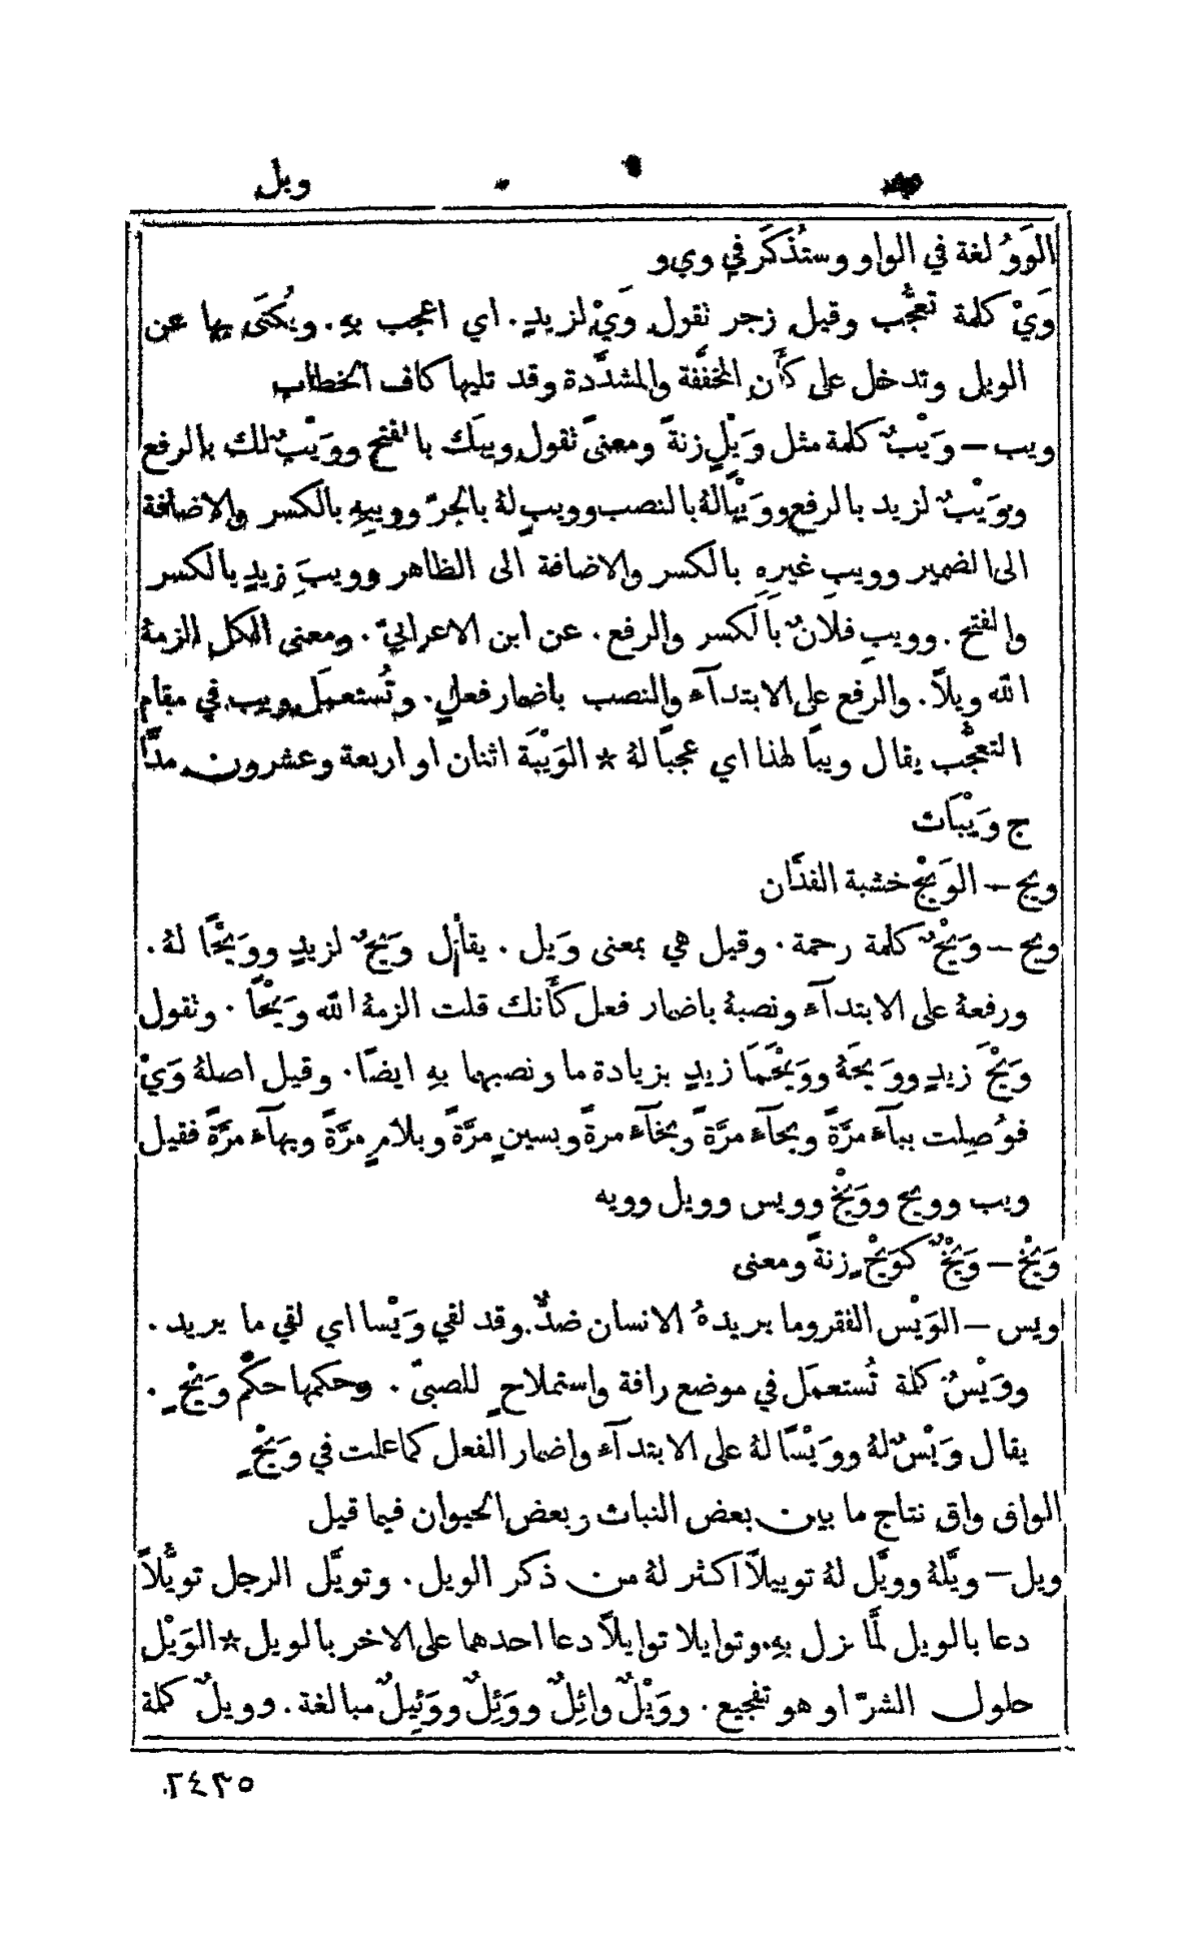 ويل
الوَوُ لغة في الواو وستُذكَر في وي و
وَيْ كلمة تعجُّب وقيل زجر نقول وَيْ لزيدٍ. اي اعجب بهِ. ويُكنَى بها عن
الويل وتدخل على كأَن المخفَّفة والمشدَّدة وقد تليها كاف الخطاب
ويب – وَيْبٌ كلمة مثل وَيْلٍ زنةً ومعنىً تقول ويبَك بالفتح ووَيْبٌ لك بالرفع
ووَيْبٌ لزيد بالرفع ووَيْبًا لهُ بالنصب وويبٍ لهُ بالجرّ وويبِهِ بالكسر والاضافة
الى الضمير وويبِ غيرِهِ بالكسر والاضافة الى الظاهر وويبَِ زيدٍ بالكسر
والفتح. وويبِ فلانٌ بالكسر والرفع. عن ابن الاعرابيّ. ومعنى الكل الزمهُ
الله ويلًا. والرفع على الابتدآء والنصب باضمار فعلٍ. وتُستعمَل ويب في مقام
التعجُّب يقال ويبًا لهذا اي عجبًا لهُ * الوَيْبَة اثنان او اربعة وعشرون مدًّا
ج وَيْبَات
ويج – الوَيْج خشبة الفدَّان
ويح – وَيْحٌ كلمة رحمة. وقيل هي بمعنى وَيل. يقال وَيحٌ لزيدٍ ووَيْحًا لهُ.
ورفعهُ على الابتدآء ونصبهُ باضمار فعل كأَنك قلت الزمهُ الله وَيْحًا. ونقول
وَيْحَ زيدٍ ووَيحَهُ ووَيْحَمَا زيدٍ بزيادة ما ونصبها بهِ ايضًا. وقيل اصلهُ وَيْ
فوُصِلت ببآء مرَّةً وبحآء مرَّةً وبخآء مرةً وبسينٍ مرَّةً وبلامٍ مرَّةً وبهآء مرَّةً فقيل
ويب وويح ووَيْخ وويس وويل وويه
وَيْخ – وَيْخٌ كوَيْحٍ زنةً ومعنى
ويس – الوَيْس الفقر وما يريدهُ الانسان ضدٌّ. وقد لقي وَيْسا اي لقي ما يريد.
ووَيْسٌ كلمة تُستعمَل في موضع رافة واستملاحٍ للصبيّ. وحكمها حكْم وَيْحٍ.
يقال وَيْسٌ لهُ ووَيْسًا لهُ على الابتدآء واضمار الفعل كما علمت في وَيْحٍ
الواق واق نتاج ما بين بعض النبات وبعض الحيوان فيما قيل
ويل – ويَّلهُ وويَّل لهُ توييلًا اكثر لهُ من ذكر الويل. وتويَّل الرجل تويُّلًا
دعا بالويل لمَّا نزل بهِ. وتوايلا توايلًا دعا احدهما على الاخر بالويل * الوَيْل
حلول الشرّ او هو تفجيع. ووَيْلٌ وائِلٌ ووَئِلٌ ووَئِيلٌ مبالغة. وويلٌ كلمة
٢٤٣٥